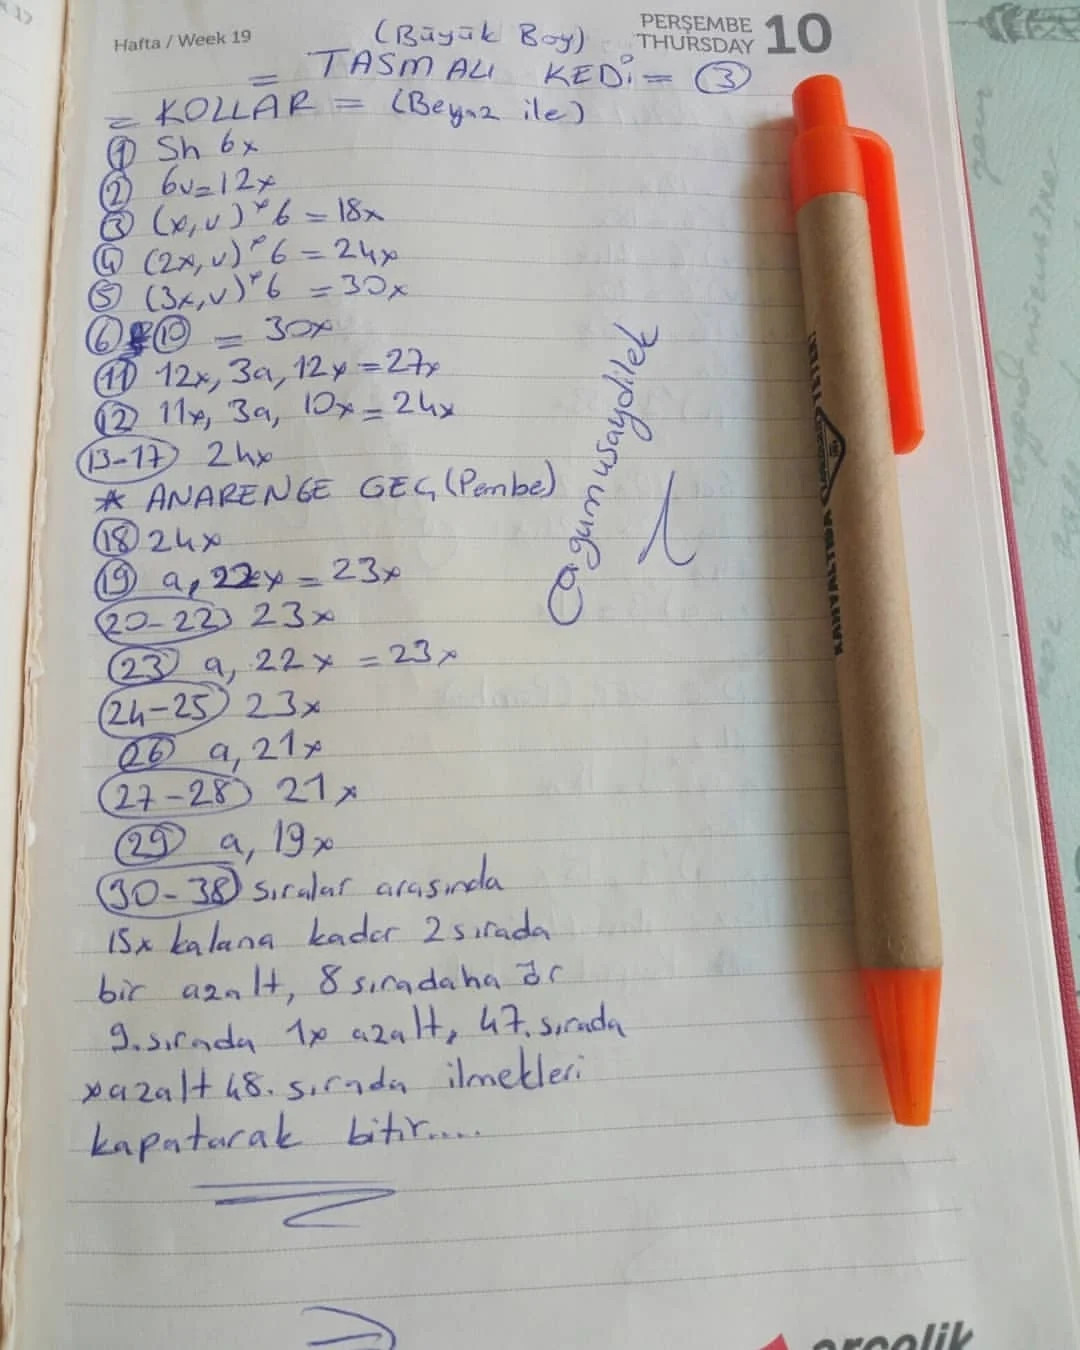 Hafta / Week 19
PERŞEMBE
THURSDAY 10
(Büyük Boy)
= TASMALI KEDİ = 3
= KOLLAR = (Beyaz ile)
1 Sh 6x
2 6v=12x
3 (x,v)*6 = 18x
4 (2x,v)*6 = 24x
5 (3x,v)*6 = 30x
6 10 = 30x
11 12x, 3a, 12x = 27x
12 11x, 3a, 10x = 24x
13-17 24x
* ANARENGE GEÇ (Pembe)
18 24x
19 a, 22x = 23x
20-22 23x
23 a, 22x = 23x
24-25 23x
26 a, 21x
27-28 21x
29 a, 19x
30-38 sıralar arasında
15x kalana kadar 2 sırada
bir azalt, 8 sıradaha ör
9. sırada 1x azalt, 47. sırada
x azalt 48. sırada ilmekleri
kapatarak bitir....
agumusaydilek
KAHVALTIDA
YETER!
arçelik